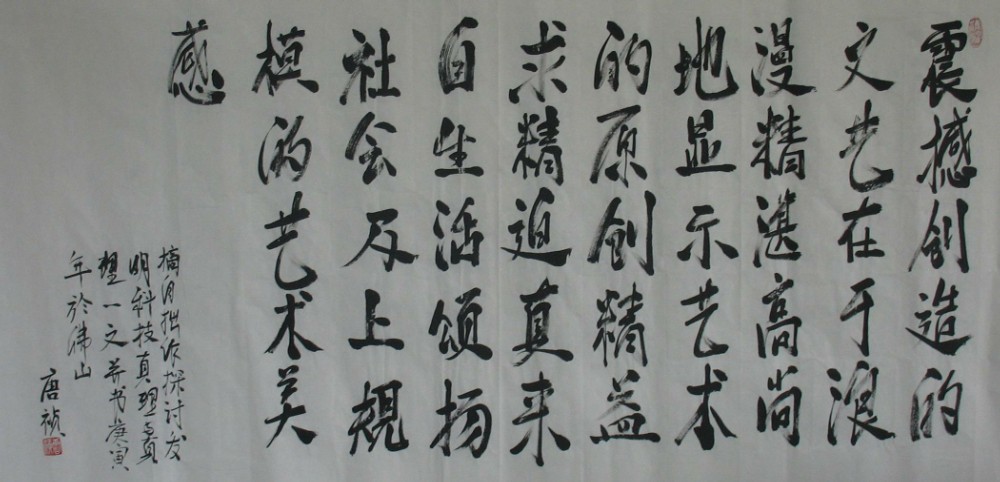 震撼创造的
文艺在于浪
漫精湛高尚
地显示艺术
的原创精益
求精迫真来
自生活颂扬
社会及上规
模的艺术美
感
摘自拙作探讨发
明科技真理与真
理一文并书庚寅
年於佛山
唐祯